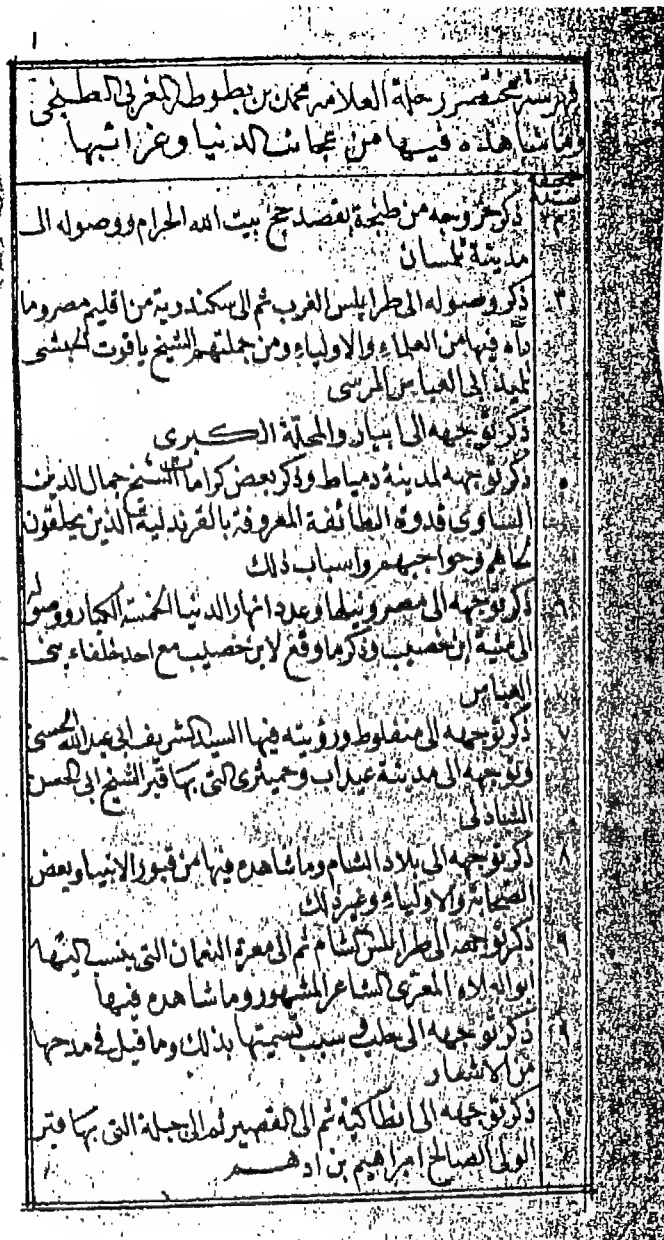 ١
فهرسة مختصر رحلة العلامه محمد بن بطوطه المغربى الطنجى
وما شاهده فيها من عجائب الدنيا وغرائبها
صحيفة
٢ ذكر خروجه من طنجة لقصد حج بيت الله الحرام ووصوله الى
مدينة تلمسان
٣ ذكر وصوله الى طرابلس الغرب ثم الى سكندرية من اقليم مصر وما
رآه فيها من العلماء والاولياء ومن جملتهم الشيخ ياقوت الحبشى
تلميذ ابى العباس المرسى
ذكر توجهه الى ابيار والمحلة الكبرى
٥ ذكر توجهه لمدينة دمياط وذكر بعض كرامات الشيخ جمال الدين
الساوى قدوة الطائفة المعروفة بالقرندلية الذين يحلقون
لحاهم وحواجبهم واسباب ذلك
٦ ذكر توجهه الى مصر ونيلها وعدد انهار الدنيا الخمسة الكبار ووصوله
الى منية ابن خصيب وذكر ما وقع لابن خصيب مع احد خلفاء بنى
العباس
٧ ذكر توجهه الى منفلوط ورؤيته فيها السيد الشريف ابى عبد الله الحسنى
وتوجهه الى مدينة عيذاب وحميثرى التى بها قبر الشيخ ابى الحسن
الشاذلى
٨ ذكر توجهه الى بلاد الشام وما شاهده فيها من قبور الانبيا وبعض
الصحابة والاولياء وغير ذلك
٩ ذكر توجهه الى طرابلس الشام ثم الى معرة النعمان التى ينسب اليها
ابو العلاء المعرى الشاعر المشهور وما شاهده فيها
٩ ذكر توجهه الى حلب فى سبب تسميتها بذلك وما قيل فى مدحها
من الاشعار
١٠ ذكر توجهه الى انطاكية ثم الى القصير ثم الى جبلة التى بها قبر
الولى الصالح ابراهيم بن ادهم